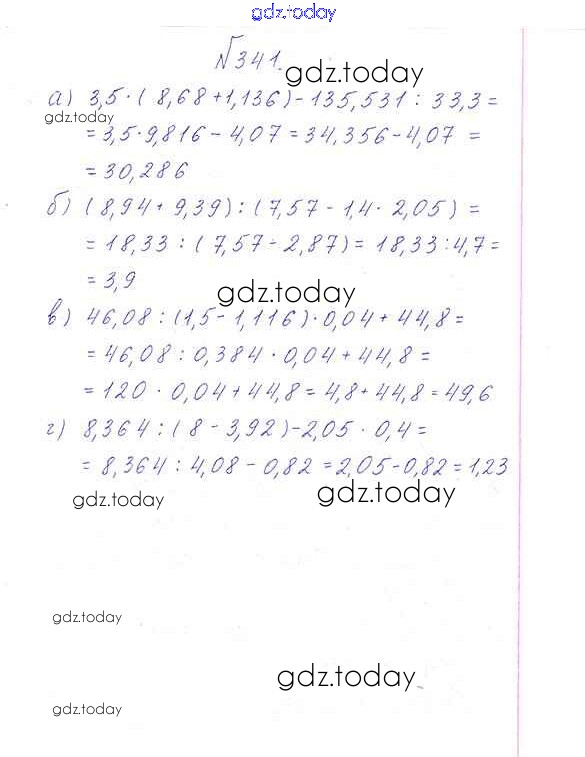 gdz.today
№341.
gdz.today
а) 3,5·(8,68+1,136)-135,531:33,3=
gdz.today
=3,5·9,816-4,07=34,356-4,07=
=30,286
б) (8,94+9,39):(7,57-1,4·2,05)=
=18,33:(7,57-2,87)=18,33:4,7=
=3,9
gdz.today
в) 46,08:(1,5-1,116)·0,04+44,8=
=46,08:0,384·0,04+44,8=
=120·0,04+44,8=4,8+44,8=49,6
г) 8,364:(8-3,92)-2,05·0,4=
=8,364:4,08-0,82=2,05-0,82=1,23
gdz.today
gdz.today
gdz.today
gdz.today
gdz.today